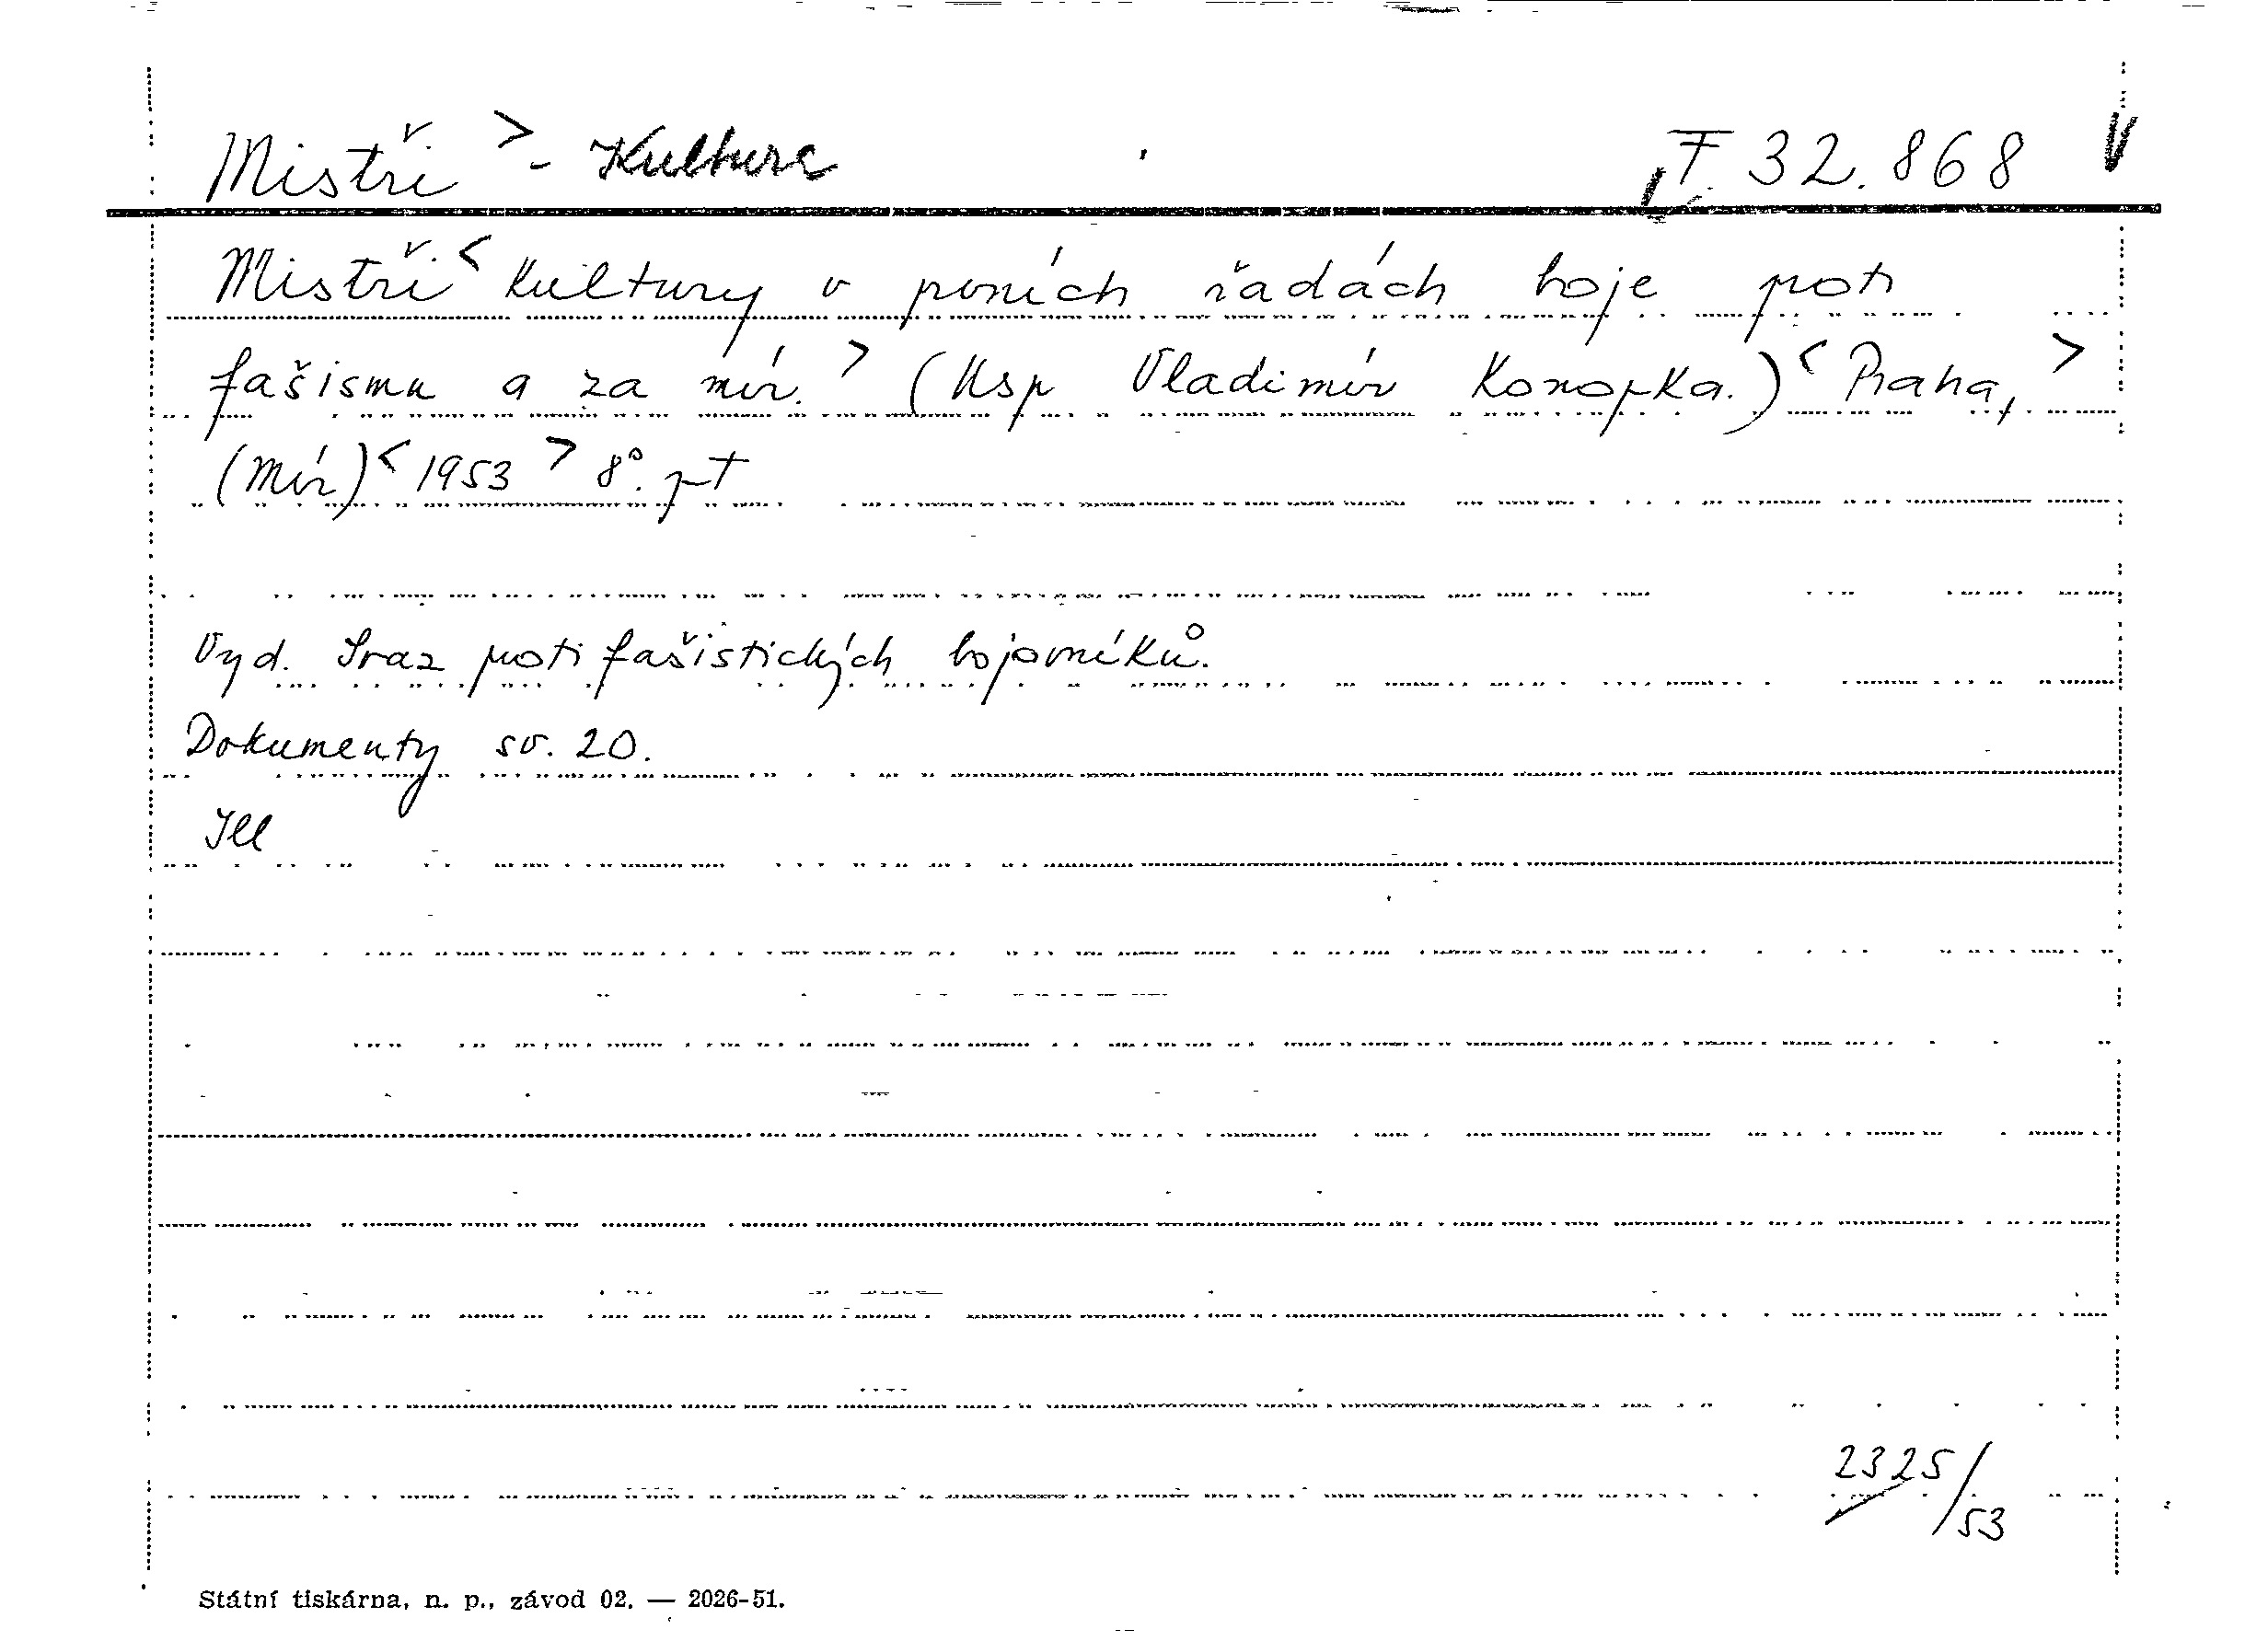 Mistři > - Kultura F 32.868 V
Mistři < kultury v prvních řadách boje proti
fašismu a za mír. > (Usp Vladimír Konopka.) < Praha, >
(Mír) < 1953 > 8°. pt
Vyd. Svaz protifašistických bojovníků.
Dokumenty sv. 20.
Ill
2325/53
Státní tiskárna, n. p., závod 02. — 2026-51.